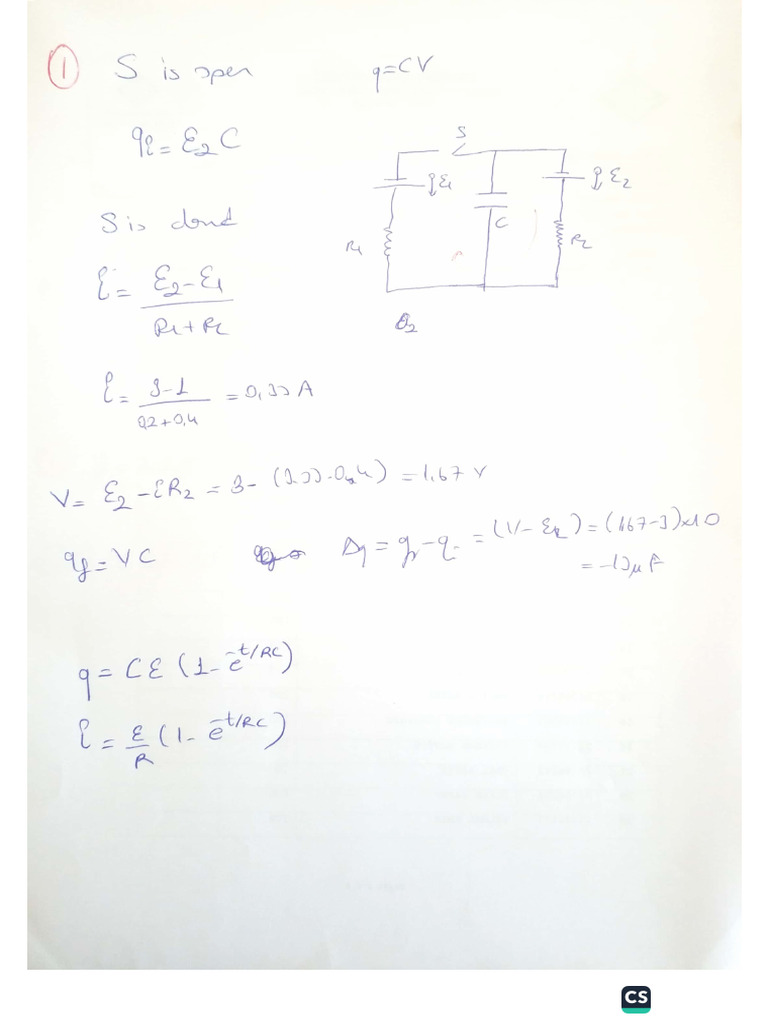 1 S is open q=CV
qi = ε2 C
S
ε1
ε2
C
R1
R2
S is closed
i = ε2-ε1 / R1+R2
i = 3-1 / 0,2+0,4 = 0,33 A
V = ε2 - iR2 = 3 - (3.33 · 0,4) = 1,67 V
qf = VC Δq = qf - qi = (V - ε2) = (1,67-3)×10
= -13μF
q = Cε (1 - e^-t/RC)
i = ε/R (1 - e^-t/RC)
CS